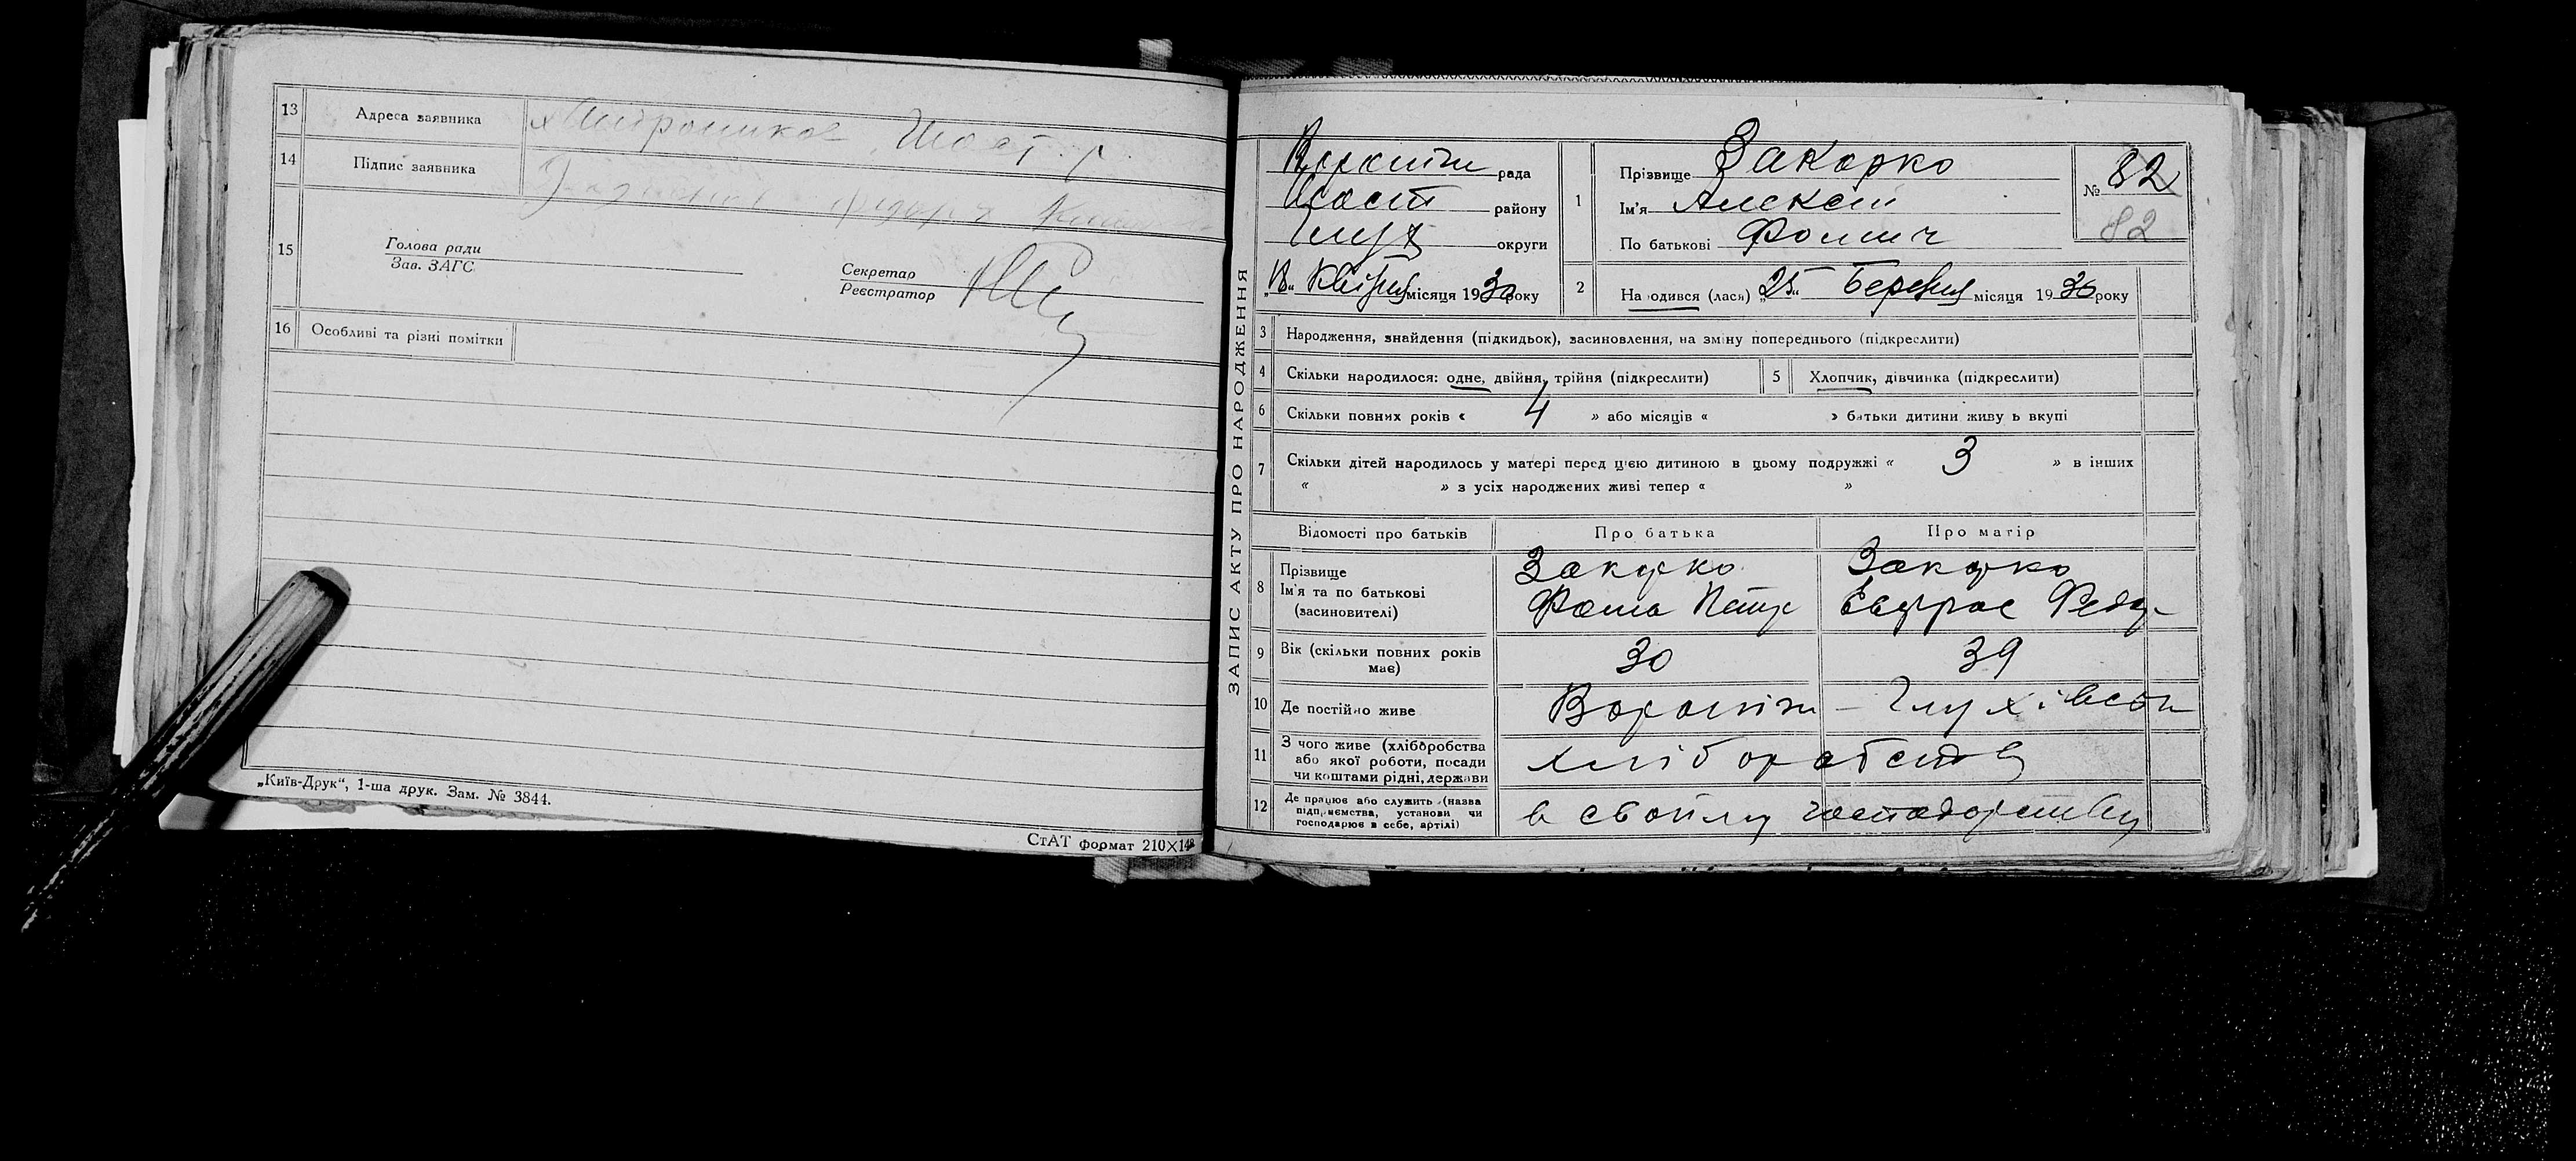 13 Адреса заявника
14 Підпис заявника
15 Голова ради
Зав. ЗАГС
Секретар
Реєстратор
16 Особливі та різні помітки
„Київ-Друк“, 1-ша друк. Зам. № 3844.
СтАТ формат 210×148
ЗАПИС АКТУ ПРО НАРОДЖЕННЯ
Вороніж рада
Шост району
Глух округи
„18“ Квітня місяця 1930 року
1 Прізвище Закорко
Ім'я Алексей
По батькові Фомич
№ 82
82
2 Народився (лася) „25“ Березня місяця 1930 року
3 Народження, знайдення (підкидьок), засиновлення, на зміну попереднього (підкреслити)
4 Скільки народилося: одне, двійня, трійня (підкреслити) 5 Хлопчик, дівчинка (підкреслити)
6 Скільки повних років « 4 » або місяців « » батьки дитини живуть вкупі
7 Скільки дітей народилось у матері перед цією дитиною в цьому подружжі « 3 » в інших
« » з усіх народжених живі тепер « »
Відомості про батьків Про батька Про матір
8 Прізвище Закорко Закорко
Ім'я та по батькові Фома Петр Евфрос Федор
(засновителі)
9 Вік (скільки повних років має) 30 39
10 Де постійно живе Вороніж - Глухівськ
11 З чого живе (хліборобства
або якої роботи, посади хліборобство
чи коштами рідні, держави
12 Де працює або служить (назва
підприємства, установи чи в своїму господарстві
господарює в себе, артілі)